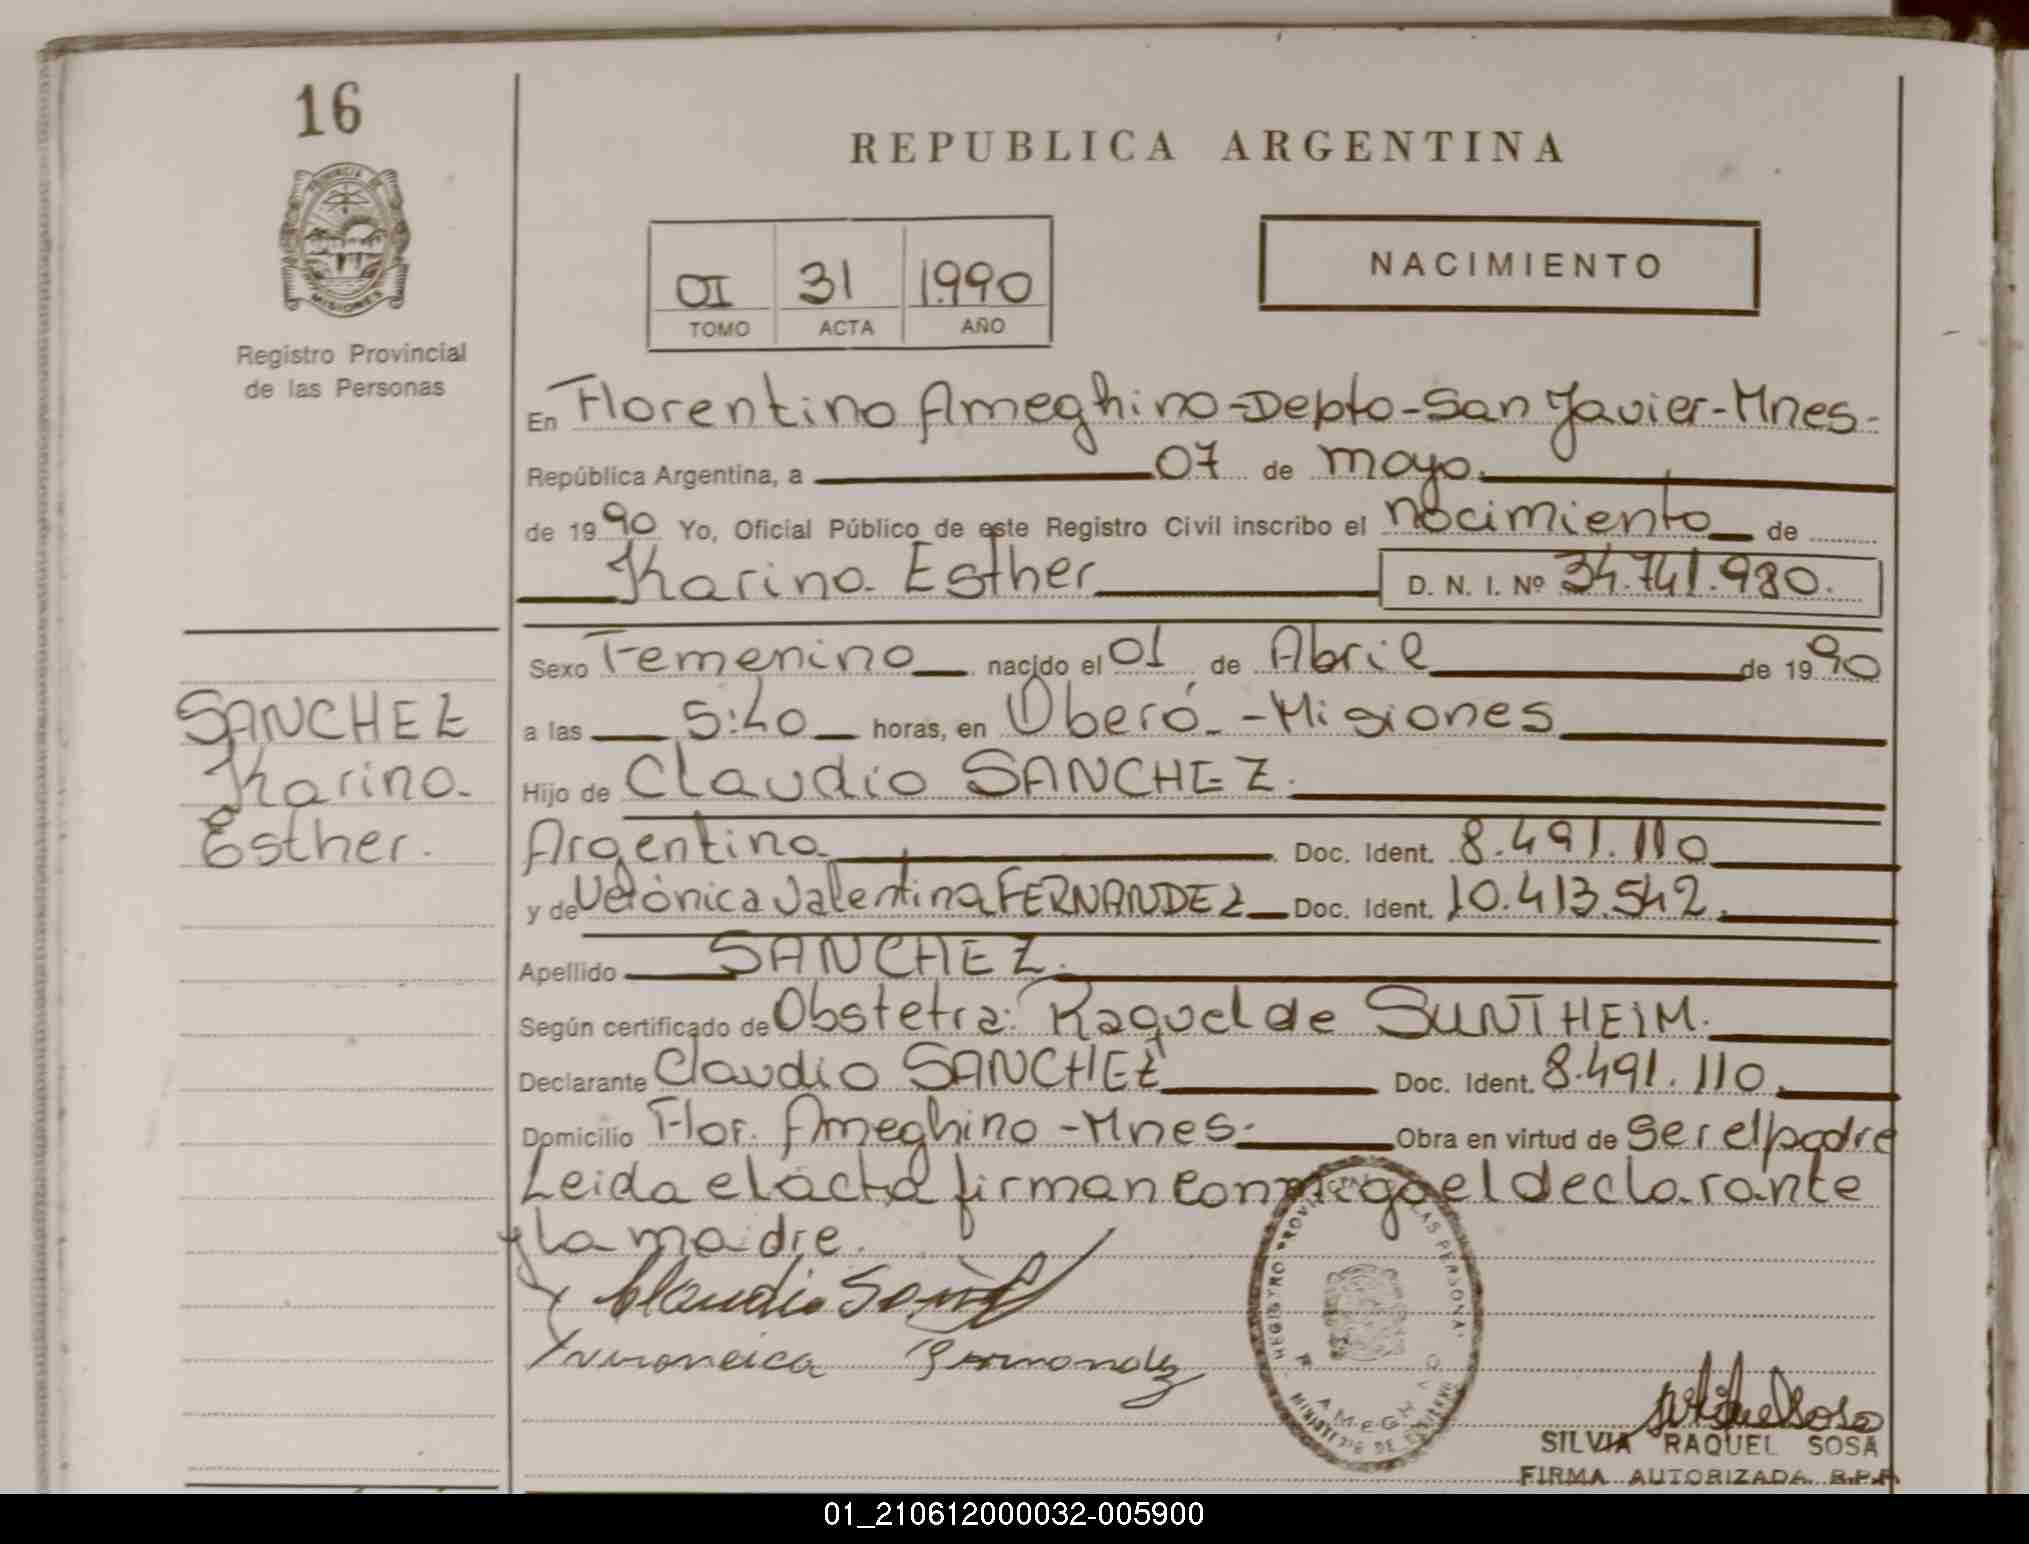 16
PROVINCIA DE
MISIONES
Registro Provincial
de las Personas
REPUBLICA ARGENTINA
OI 31 1.990
TOMO ACTA AÑO
NACIMIENTO
En Florentino Ameghino-Depto-San Javier-Mnes-
República Argentina, a 07 de mayo
de 1990 Yo, Oficial Público de este Registro Civil inscribo el nacimiento de
Karina Esther D. N. I. Nº 34.741.980.
Sexo Femenino nacido el 01 de Abril de 1990
a las 5:40 horas, en Oberá - Misiones
Hijo de Claudio SANCHEZ.
Argentina Doc. Ident. 8.491.110
y de Verónica Valentina FERNANDEZ Doc. Ident. 10.413.542.
Apellido SANCHEZ.
Según certificado de Obstetra: Raquel de SUNTHEIM.
Declarante Claudio SANCHEZ Doc. Ident. 8.491.110
Domicilio Flor. Ameghino - Mnes. Obra en virtud de ser el padre
Leida el acta firman conmigo el declarante
y la madre.
SANCHEZ
Karina
Esther.
Claudio
REGISTRO PROVINCIAL DE LAS PERSONAS
MINISTERIO DE GOBIERNO
SILVIA RAQUEL SOSA
FIRMA AUTORIZADA R.P.P
01_210612000032-005900